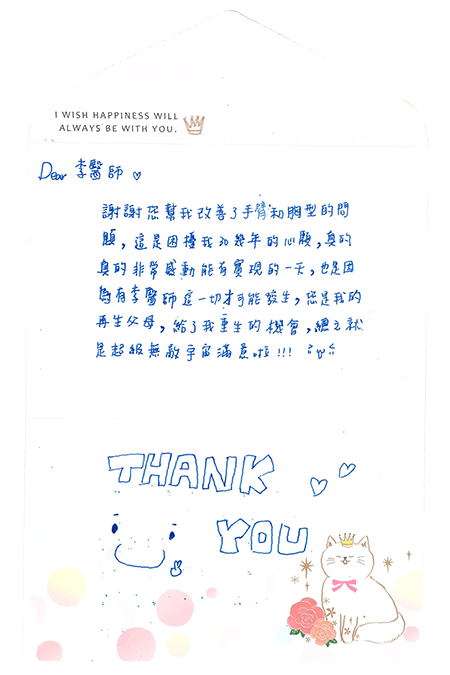 I WISH HAPPINESS WILL
ALWAYS BE WITH YOU.
Dear 李醫師
謝謝您幫我改善了手臂和胸型的問
題，這是困擾我30幾年的心願，真的
真的非常感動能有實現的一天，也是因
為有李醫師這一切才可能發生，您是我的
再生父母，給了我重生的機會，總之就
是超級無敵宇宙滿意啦!!!
THANK
YOU